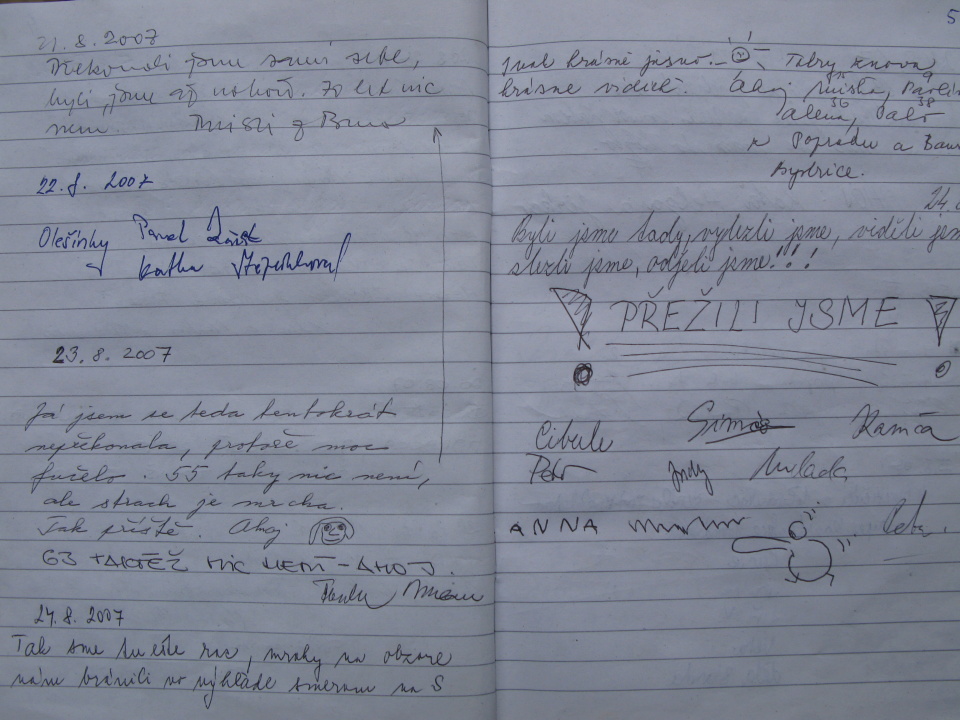 21.8.2007
Překonali jsme sami sebe,
byli jsme až nahoře. 70 let nic
není. Miski z Brna
22.8. 2007
Olešinky Pavel
Katka
23.8.2007
Já jsem se teda tentokrát
nepřekonala, protože moc
fučelo. 55 taky nic není,
ale strach je mrcha.
Tak příště. Ahoj
63 TAKTÉŽ NIC NENÍ - AHOJ.
24.8.2007
Tak sme tu ešte raz, mraky na obzore
nám bránili vo výhľade smerom na S
5
inak krásne jasno. Tatry znova
krásne vidieť. Ahoj Miška,
36 38
Alena, Paľo
z Popradu a
Bystrice.
24.
Byli jsme tady, vylezli jsme, viděli jsm
slezli jsme, odjeli jsme!!!
! PŘEŽILI JSME !
Cibule Simas Kamča
Petr Jndy Milada
ANNA